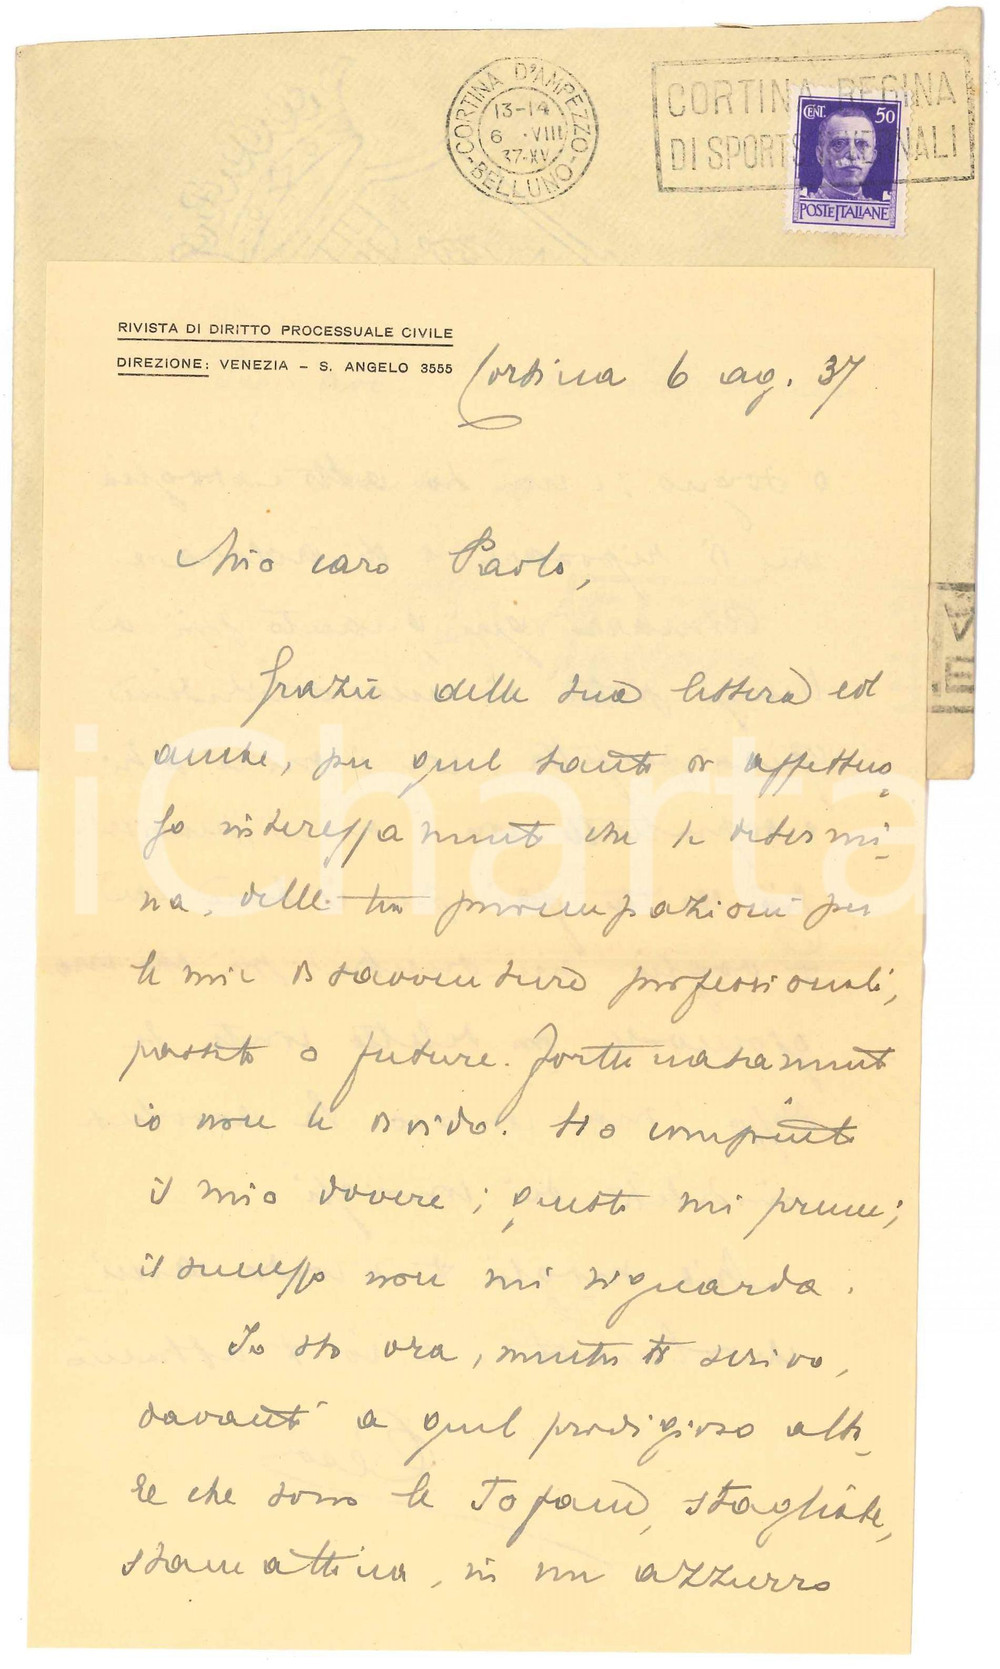 CORTINA D'AMPEZZO
13-14
6 · VIII
37-XV
-BELLUNO-
CORTINA REGINA
DI SPORTS
NALI
CENT. 50
POSTE ITALIANE
RIVISTA DI DIRITTO PROCESSUALE CIVILE
DIREZIONE: VENEZIA – S. ANGELO 3555
Cortina 6 ag. 37
Mio caro Paolo,
grazie della tua lettera ed
anche, per quel tanto di affettuo-
so interessamento che le determi-
na, delle tue preoccupazioni per
le mie disavventure professionali,
passate o future. Fortunatamente
io non le divido. Ho compiuto
il mio dovere; questo mi preme;
il successo non mi riguarda.
Io sto ora, mentre ti scrivo,
davanti a quel prodigioso alta-
re che sono le Tofane, stagliate,
stamattina, in un azzurro
iCharta